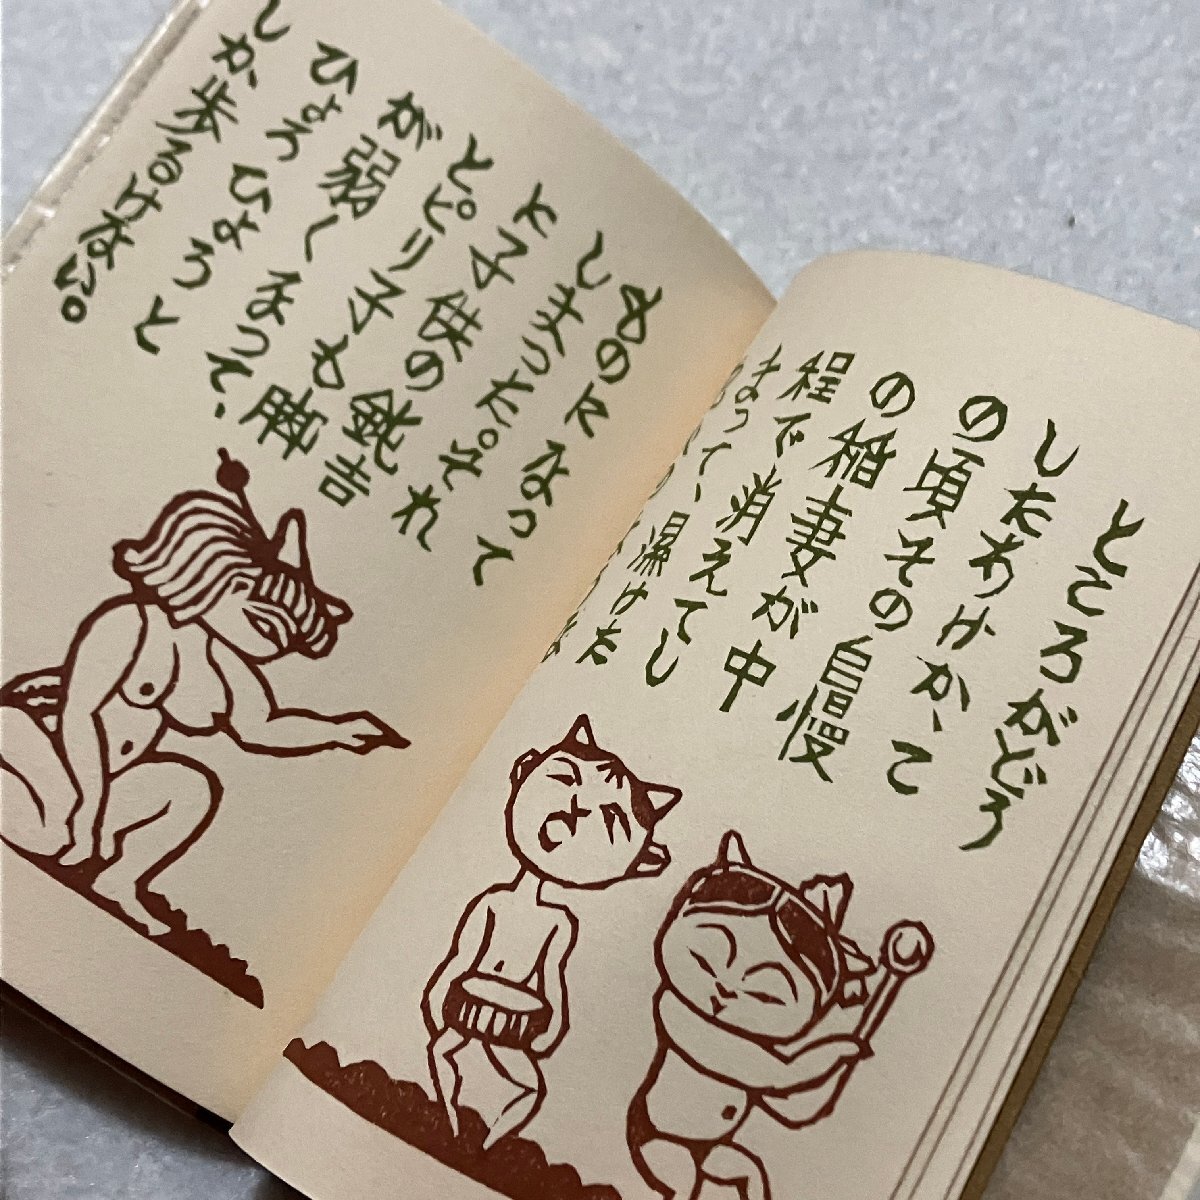 ところがどう
したわけか、こ
の頃その自慢
の稲妻が中
程で消えてし
まって、濕けた
ものになって
しまった。それ
に子供の鈍吉
とピリ子も脚
が弱くまって、
ひょろひょろと
しか歩るけない。